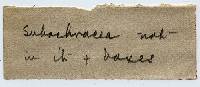 Subochracea not
in it + boxes